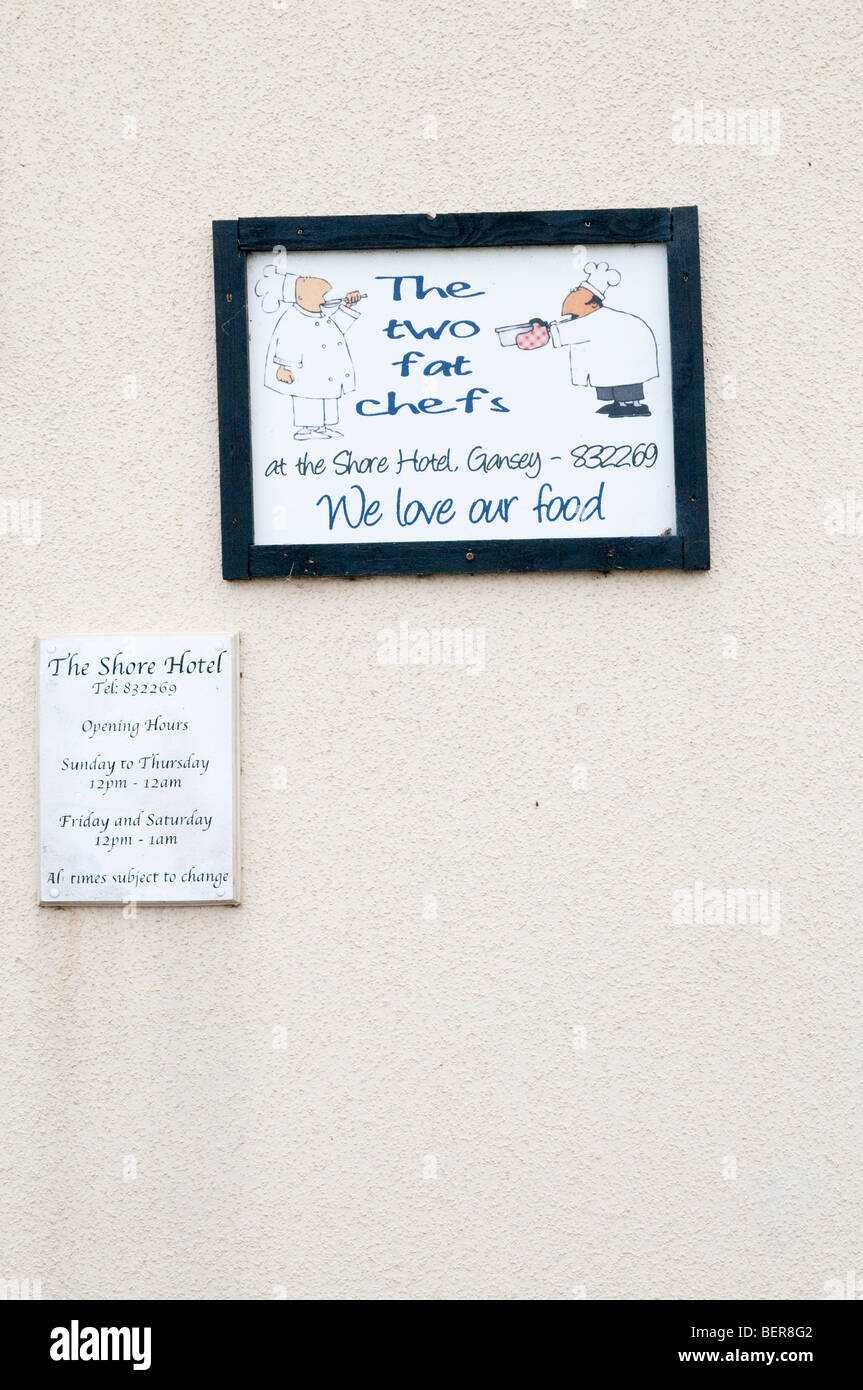 The
two
fat
chefs
at the Shore Hotel, Gansey - 832269
We love our food
The Shore Hotel
Tel: 832269
Opening Hours
Sunday to Thursday
12pm - 12am
Friday and Saturday
12pm - 1am
All times subject to change
alamy
Image ID: BER8G2
www.alamy.com